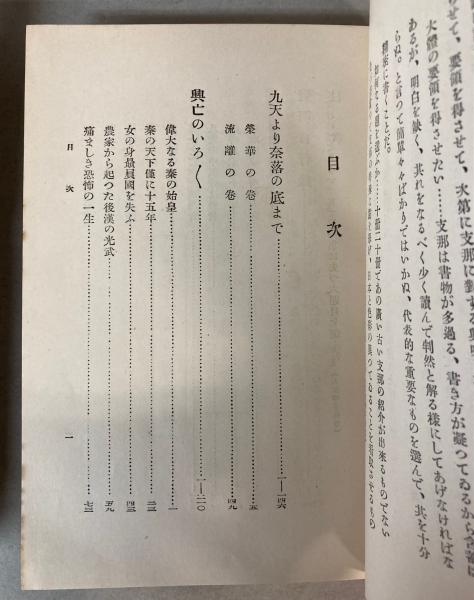 らせて、要領を得させて、次第に支那に對する興
大體の要領を得させたい……支那は書物が多過る、書き方が凝つてゐるから
あるが、明白を缺く、其れをなるべく少く讀んで判然と解る樣にしてあげなければな
らぬ。と言つて簡單々々ばかりではいかぬ、代表的な重要なものを選んで、其を十分
精密に書くことだ。
十册二十册であの廣い古い支那の紹介が出來るものでない
目次
九天より奈落の底まで……一—一四六
榮華の卷……五
流離の卷……四九
興亡のいろ〱……一—二一〇
偉大なる秦の始皇……一
秦の天下僅に十五年……三三
女の身最貝國を失ふ……四三
農家から起つた後漢の光武……五九
痛ましき恐怖の一生……七三
目次
一